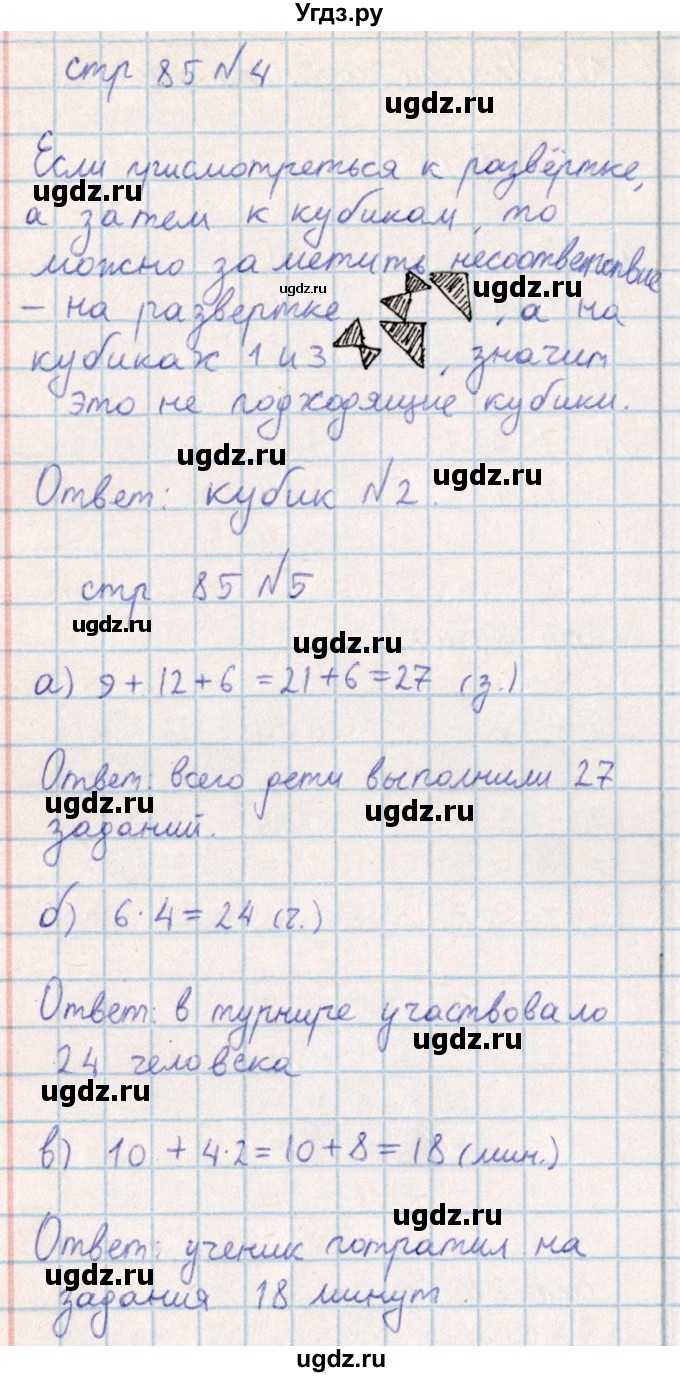 Угдз.ру
стр 85 №4
ugdz.ru
Если присмотреться к развёртке,
ugdz.ru
а затем к кубикам, то
можно заметить несоответствие
ugdz.ru
ugdz.ru
– на развертке , а на
кубиках 1 и 3 , значит
это не подходящие кубики.
ugdz.ru
ugdz.ru
Ответ: кубик №2.
стр 85 №5
ugdz.ru
ugdz.ru
а) 9 + 12 + 6 = 21 + 6 = 27 (з.)
Ответ: всего дети выполнили 27
ugdz.ru
ugdz.ru
заданий.
б) 6 · 4 = 24 (ч.)
Ответ: в турнире участвовало
ugdz.ru
24 человека
ugdz.ru
в) 10 + 4·2 = 10 + 8 = 18 (мин.)
ugdz.ru
Ответ: ученик потратил на
ugdz.ru
задания 18 минут.
ugdz.ru